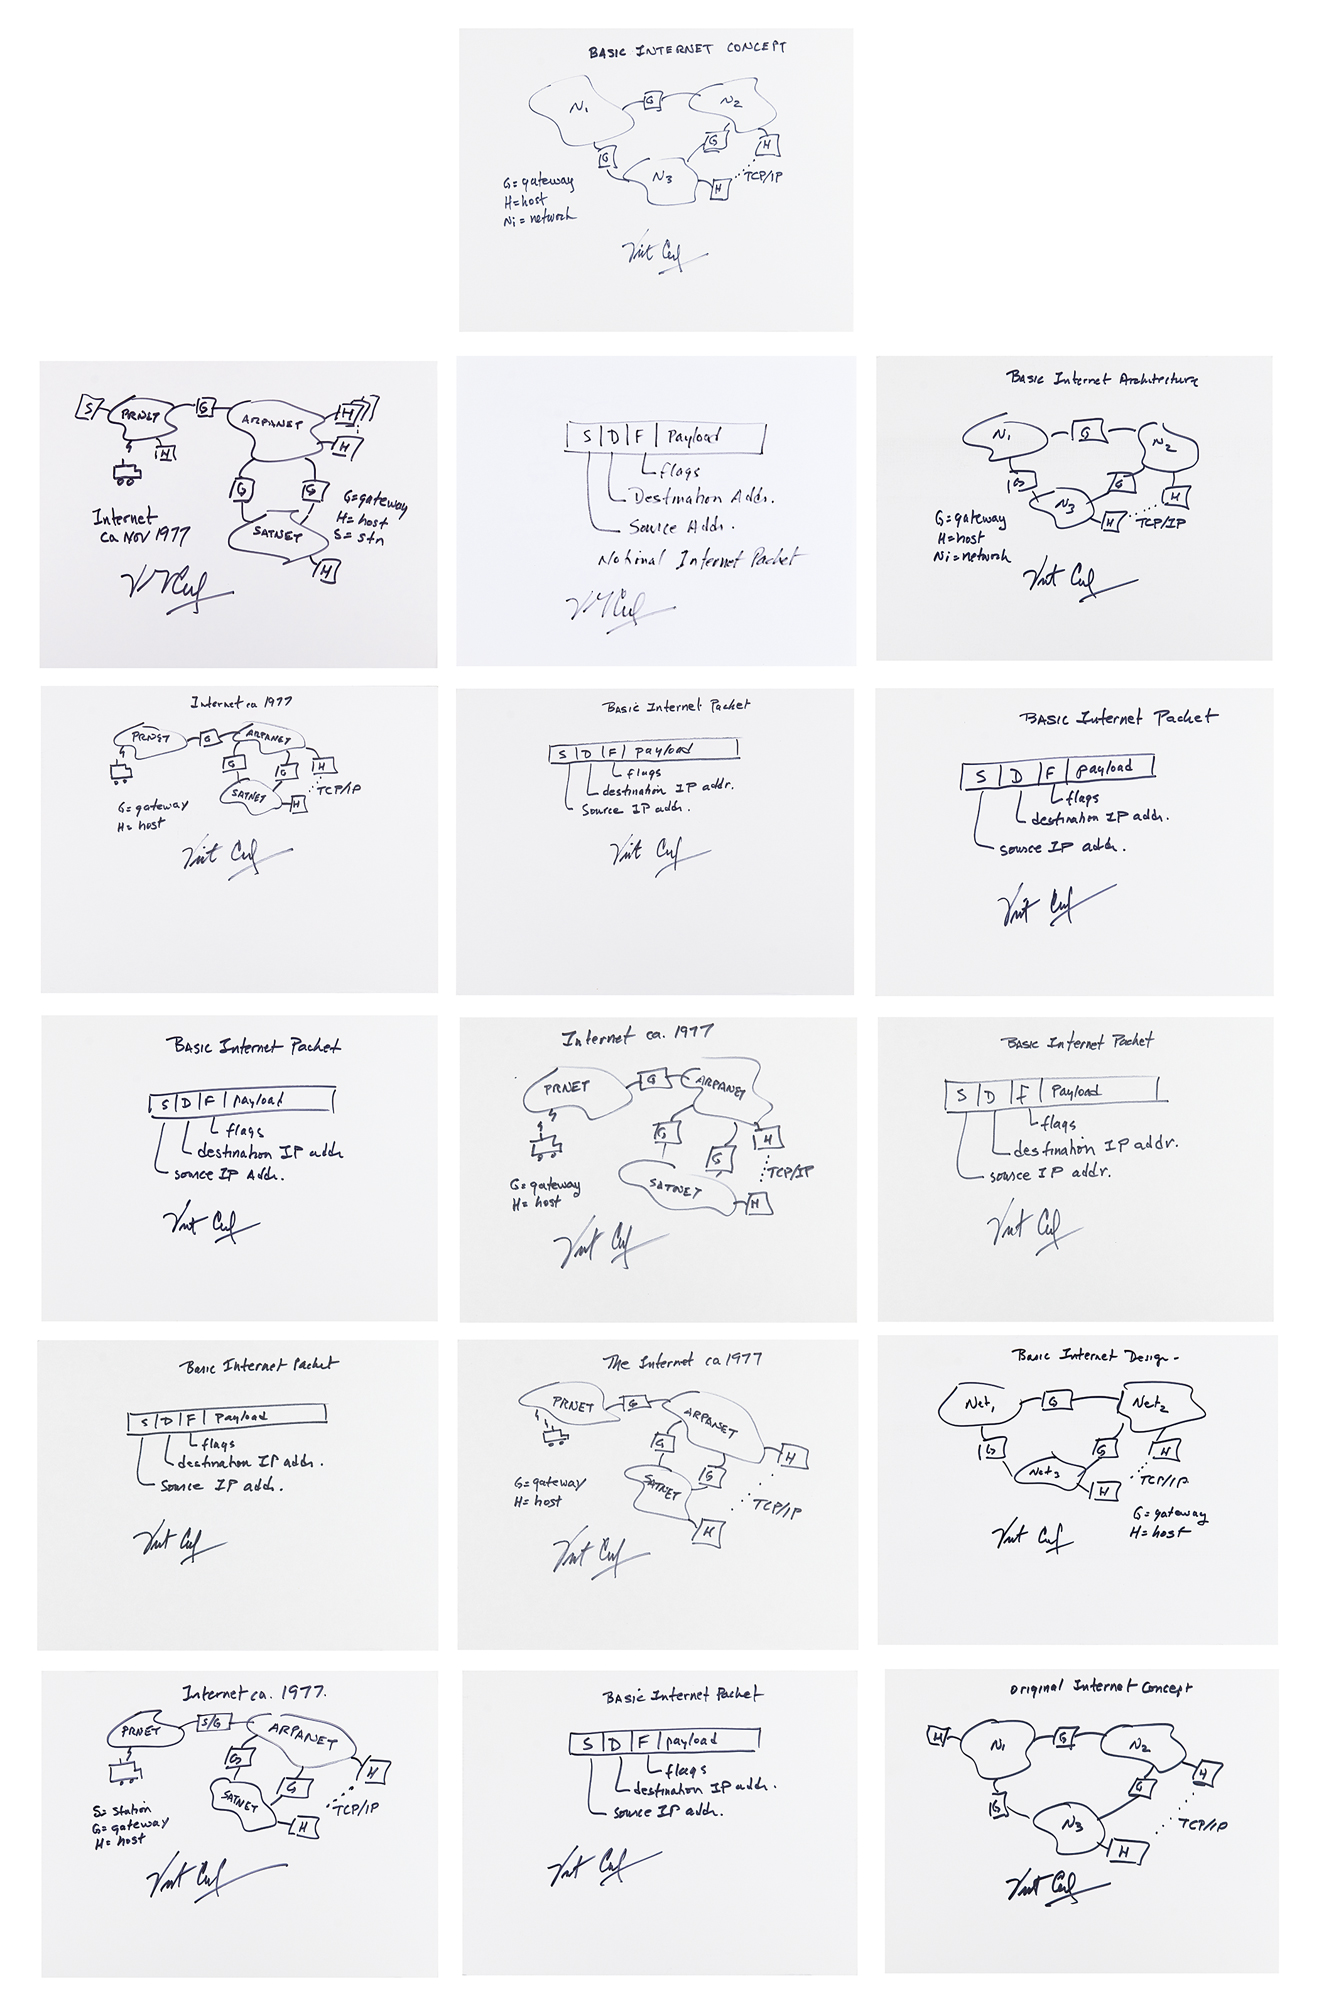 BASIC INTERNET CONCEPT
N1
G
N2
G
G
H
N3
H
TCP/IP
G=gateway
H=host
Ni=network
Vint Cerf
S
PRNET
G
ARPANET
H
H
H
G
G
G=gateway
H=host
S=stn
Internet
ca NOV 1977
SATNET
H
VGCerf
S D F Payload
flags
Destination Addr.
Source Addr.
Notional Internet Packet
VGCerf
Basic Internet Architecture
N1
G
N2
G
G
H
N3
H
TCP/IP
G=gateway
H=host
Ni=network
Vint Cerf
Internet ca 1977
PRNET
G
ARPANET
G
G
H
SATNET
H
TCP/IP
G=gateway
H=host
Vint Cerf
Basic Internet Packet
S D F payload
flags
destination IP addr.
Source IP addr.
Vint Cerf
BASIC Internet Packet
S D F payload
flags
destination IP addr.
source IP addr.
Vint Cerf
BASIC Internet Packet
S D F payload
flags
destination IP addr
source IP Addr.
Vint Cerf
Internet ca. 1977
PRNET
G
ARPANET
G
G
H
SATNET
H
TCP/IP
G=gateway
H=host
Vint Cerf
BASIC Internet Packet
S D f Payload
flags
destination IP addr.
source IP addr.
Vint Cerf
Basic Internet Packet
S D F payload
flags
destination IP addr.
Source IP addr.
Vint Cerf
The Internet ca 1977
PRNET
G
ARPANET
G
G
H
SATNET
H
TCP/IP
G=gateway
H=host
Vint Cerf
Basic Internet Design-
Net1
G
Net2
G
G
H
Net3
H
TCP/IP
G=gateway
H=host
Vint Cerf
Internet ca. 1977.
PRNET
S/G
ARPANET
G
G
H
SATNET
H
TCP/IP
S=station
G=gateway
H=host
Vint Cerf
BASIC Internet Packet
S D F payload
flags
destination IP addr.
source IP addr.
Vint Cerf
Original Internet Concept
H
N1
G
N2
G
G
H
N3
H
TCP/IP
Vint Cerf